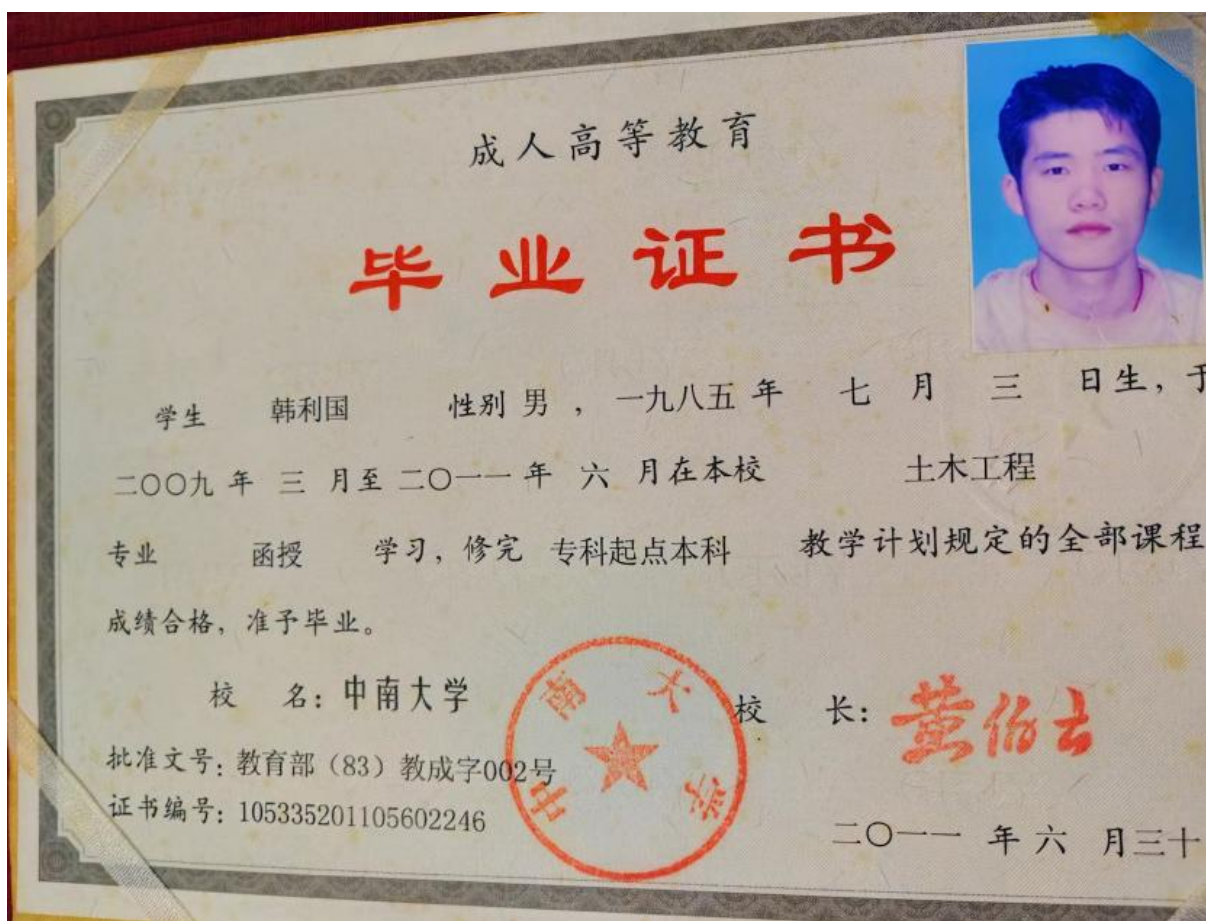 成人高等教育
毕业证书
学生 韩利国 性别 男 , 一九八五 年 七 月 三 日生, 于
二〇〇九 年 三 月至 二〇一一 年 六 月在本校 土木工程
专业 函授 学习, 修完 专科起点本科 教学计划规定的全部课程
成绩合格, 准予毕业。
校 名: 中南大学
校 长: 黄伯云
中南大学
批准文号: 教育部 (83) 教成字002号
证书编号: 105335201105602246
二〇一一 年 六 月 三十